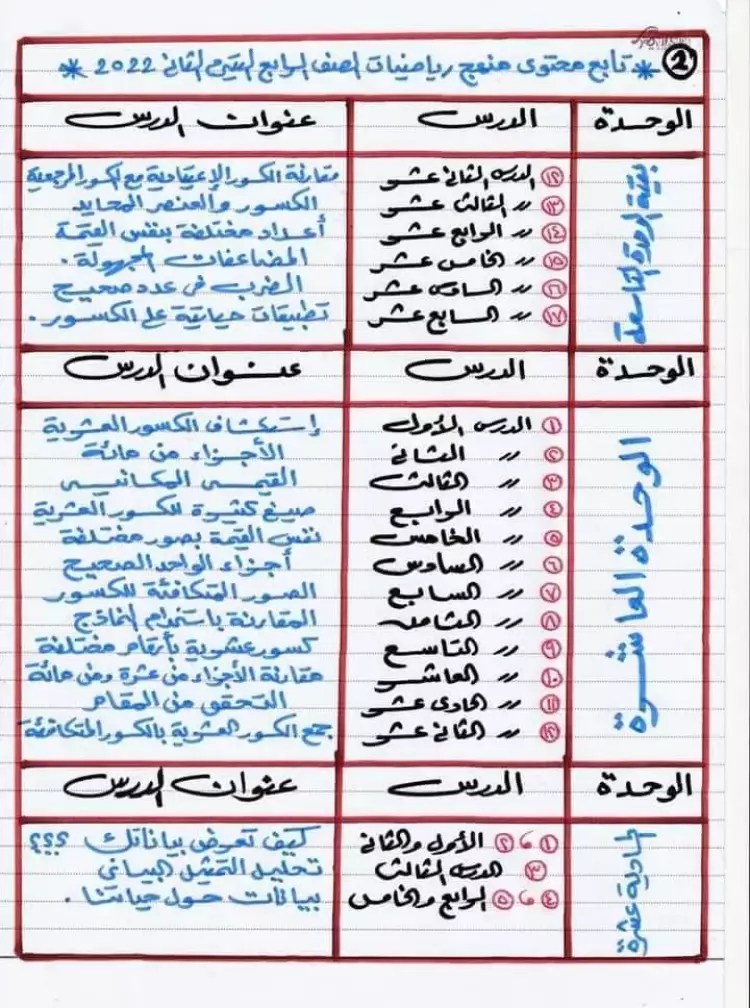 ② * تابع محتوى منهج رياضيات الصف الرابع الترم الثاني 2022 *
الوحدة الدرس عنوان الدرس
بقية الوحدة التاسعة
⑫ الدرس الثاني عشر مقارنة الكسور الاعتيادية مع الكسور المرجعية
⑬ 〃 الثالث عشر الكسور والعنصر المحايد
⑭ 〃 الرابع عشر أعداد مختلفة بنفس القيمة
⑮ 〃 الخامس عشر المضاعفات المجهولة.
⑯ 〃 السادس عشر الضرب في عدد صحيح
⑰ 〃 السابع عشر تطبيقات حياتية على الكسور.
الوحدة الدرس عنوان الدرس
الوحدة العاشرة
① الدرس الأول إستكشاف الكسور العشرية
② 〃 الثاني الأجزاء من مائة
③ 〃 الثالث القيمة المكانية
④ 〃 الرابع صيغ كثيرة للكسور العشرية
⑤ 〃 الخامس نفس القيمة بصور مختلفة
⑥ 〃 السادس أجزاء الواحد الصحيح
⑦ 〃 السابع الصور المتكافئة للكسور
⑧ 〃 الثامن المقارنة باستخدام النماذج
⑨ 〃 التاسع كسور عشرية بأرقام مختلفة
⑩ 〃 العاشر مقارنة الأجزاء من عشرة ومن مائة
⑪ 〃 الحادي عشر التحقق من المقام
⑫ 〃 الثاني عشر جمع الكسور العشرية بالكسور المتكافئة
الوحدة الدرس عنوان الدرس
الحادية عشرة
① ، ② الأول والثاني كيف تعرض بياناتك ؟؟؟
③ الدرس الثالث تحليل التمثيل البياني
④ ، ⑤ الرابع والخامس بيانات حول حياتنا.